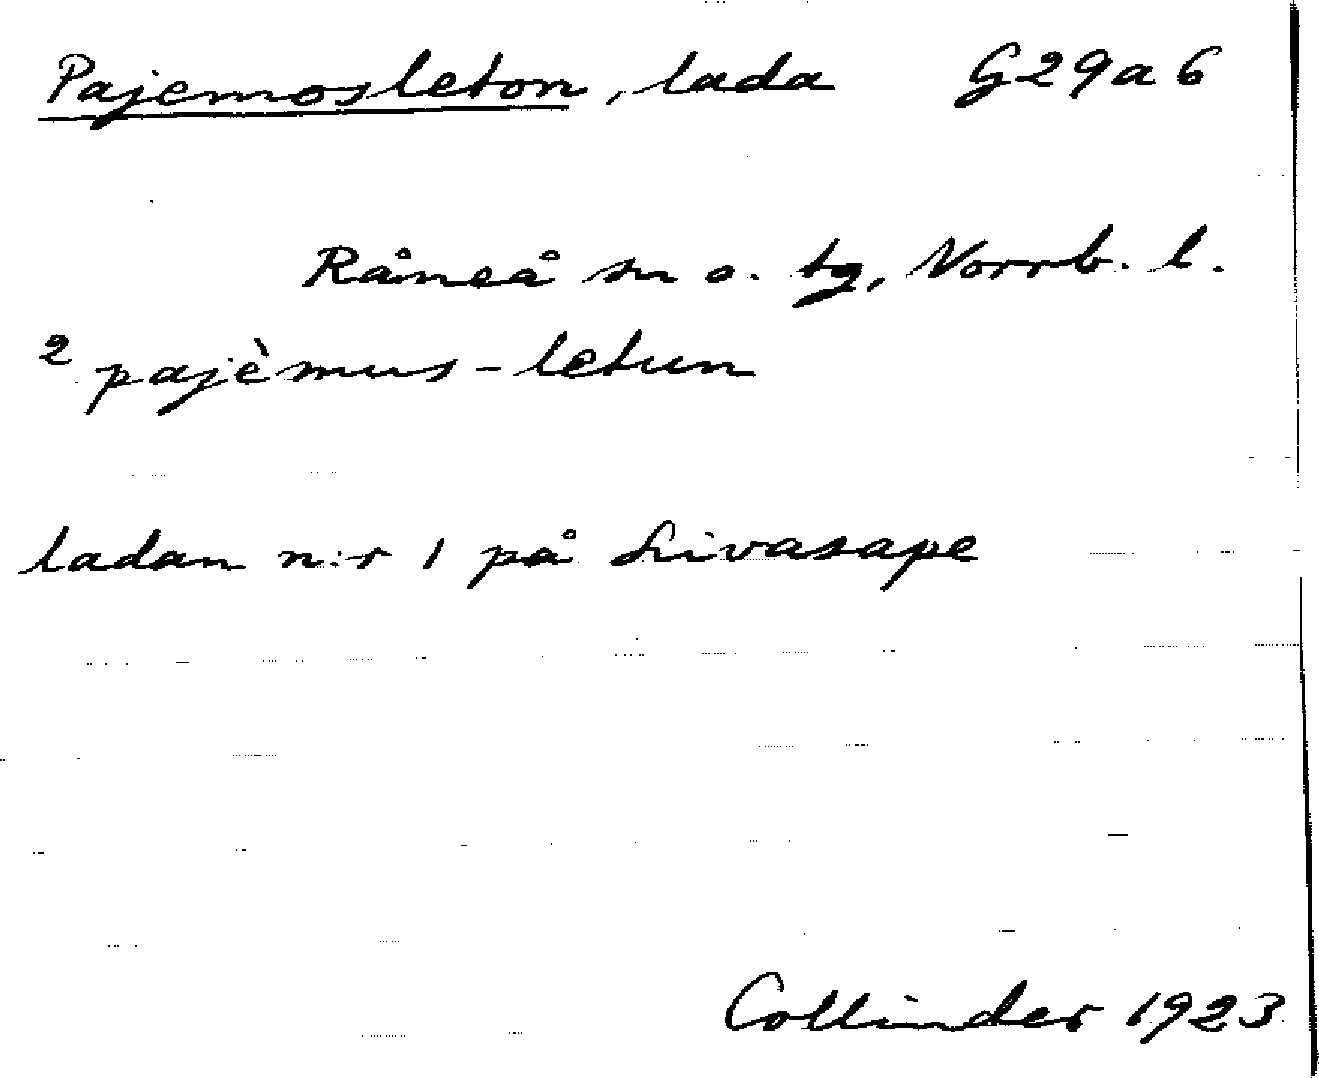 Pajemosleton, lada G29a6
Råneå sn o. tg, Norrb. l.
² pajèmus-letun
ladan n:r 1 på Livasape
Collinder 1923